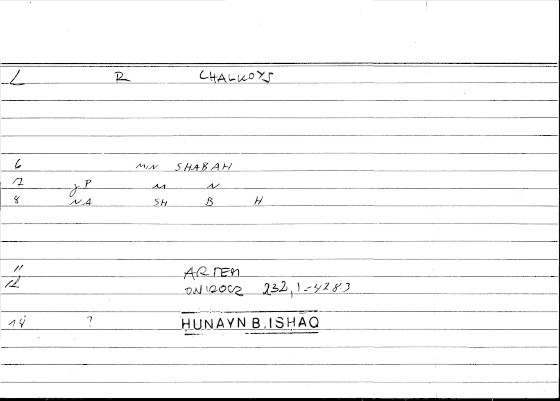 1 R CHALKOYS
6 MIN SHABAH
7 P M N
8 NA SH B H
11 ARTEM
12 232,1-4283
14 ? HUNAYN B. ISHAQ